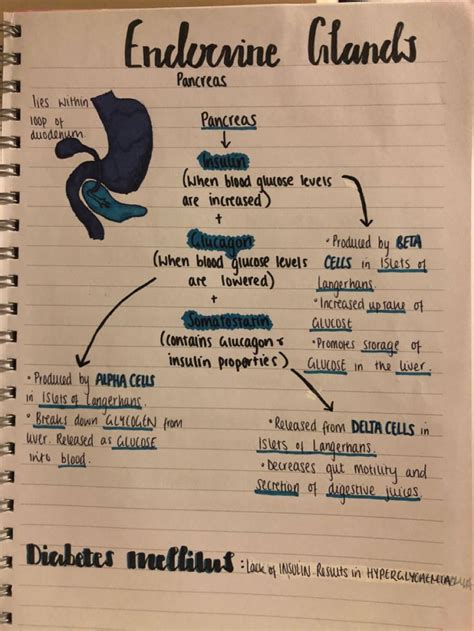 Endocrine Glands
Pancreas
lies within
loop of
duodenum.
Pancreas
Insulin
(When blood glucose levels
are increased)
+
Glucagon
(When blood glucose levels
are lowered)
+
Somatostatin
(contains Glucagon &
insulin properties)
• Produced by BETA
CELLS in Islets of
Langerhans.
• Increased uptake of
GLUCOSE
• Promotes storage of
GLUCOSE in the liver.
• Produced by ALPHA CELLS
in Islets of Langerhans.
• Breaks down GLYCOGEN from
liver. Released as GLUCOSE
into blood.
• Released from DELTA CELLS in
Islets of Langerhans.
• Decreases gut motility and
secretion of digestive juices.
Diabetes mellitus: Lack of INSULIN. Results in HYPERGLYCAEMIA